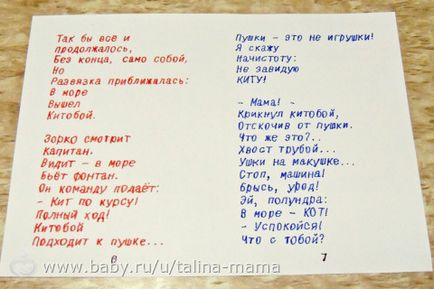 Так бы все и
продолжалось,
Без конца, само собой,
Но
Развязка приближалась:
В море
Вышел
Китобой.
Зорко смотрит
Капитан.
Видит – в море
Бьёт фонтан.
Он команду подаёт:
- Кит по курсу!
Полный ход!
Китобой
Подходит к пушке...
6
Пушки - это не игрушки!
Я скажу
Начистоту:
Не завидую
КИТУ!
- Мама! -
Крикнул китобой,
Отскочив от пушки.
Что же это?..
Хвост трубой...
Ушки на макушке...
Стоп, машина!
брысь, урод!
Эй, полундра:
В море - КОТ!
- Успокойся!
Что с тобой?
7
www.baby.ru/u/talina-mama